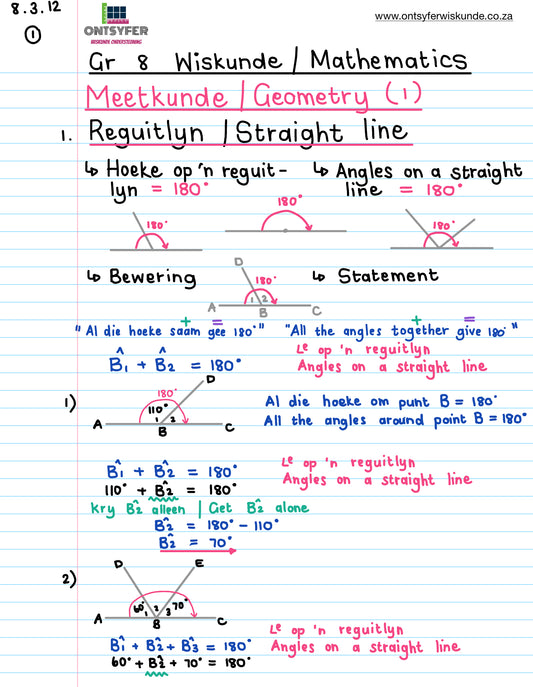 8.3.12
www.ontsyferwiskunde.co.za
①
ONTSYFER
WISKUNDE ONDERSTEUNING
Gr 8 Wiskunde | Mathematics
Meetkunde | Geometry (1)
1. Reguitlyn | Straight line
↳ Hoeke op 'n reguit-
lyn = 180°
↳ Angles on a straight
line = 180°
180°
180°
180°
↳ Bewering
D
180°
1 2
A B C
↳ Statement
+ =
"Al die hoeke saam gee 180°"
+ =
"All the angles together give 180°"
B̂1 + B̂2 = 180°
Le op 'n reguitlyn
Angles on a straight line
1)
D
180°
110°
1 2
A B C
Al die hoeke om punt B = 180°
All the angles around point B = 180°
B̂1 + B̂2 = 180°
Le op 'n reguitlyn
Angles on a straight line
110° + B̂2 = 180°
kry B̂2 alleen | Get B̂2 alone
B̂2 = 180° - 110°
B̂2 = 70°
2)
D E
60° 1 2 3 70°
A B C
B̂1 + B̂2 + B̂3 = 180°
Le op 'n reguitlyn
Angles on a straight line
60° + B̂2 + 70° = 180°